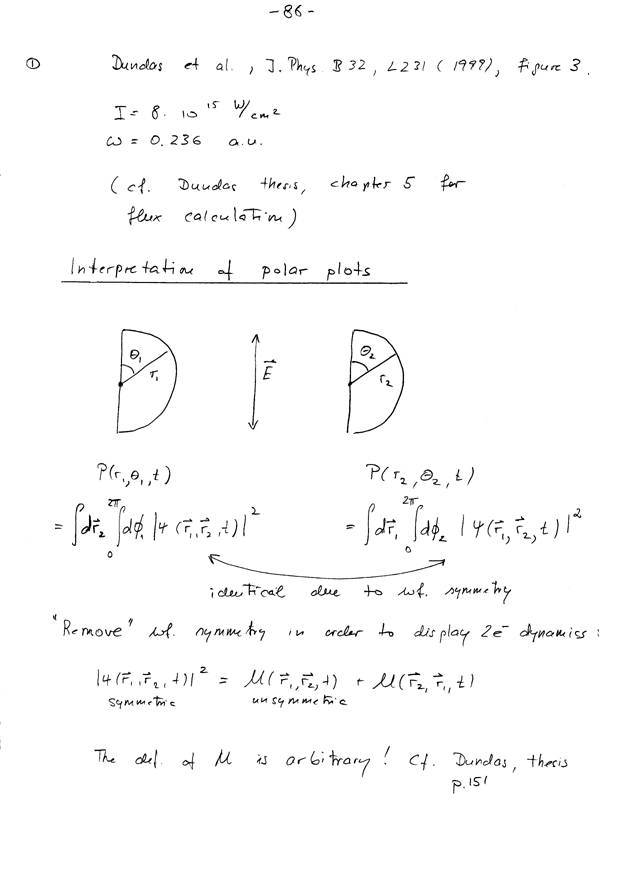 -86-
① Dundas et al., J. Phys. B 32, L231 (1999), Figure 3.
I = 8. 10^15 W/cm^2
ω = 0.236 a.u.
(cf. Dundas thesis, chapter 5 for
flux calculation)
Interpretation of polar plots
θ₁ r₁ E⃗ θ₂ r₂
P(r₁,θ₁,t) P(r₂,θ₂,t)
= ∫dr⃗₂ ∫₀^2π dϕ₁ |ψ(r⃗₁,r⃗₂,t)|² = ∫dr⃗₁ ∫₀^2π dϕ₂ |ψ(r⃗₁,r⃗₂,t)|²
identical due to wf. symmetry
"Remove" wf. symmetry in order to display 2e⁻ dynamics:
|ψ(r⃗₁,r⃗₂,t)|² = M(r⃗₁,r⃗₂,t) + M(r⃗₂,r⃗₁,t)
symmetric unsymmetric
The def. of M is arbitrary! Cf. Dundas, thesis
p.151